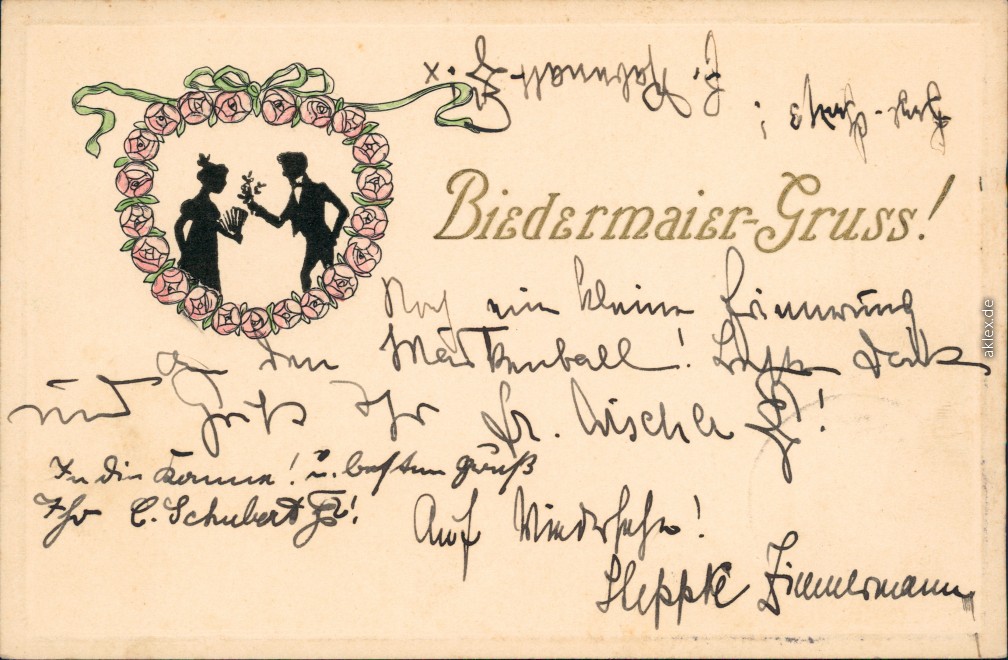 Biedermaier-Gruss!
Noch eine kleine Erinnerung
an den Maskenball! Besten Dank
und Gruß Ihr Fr. Aischer
In die Kanne! u. besten Gruß
Ihr C. Schubert
Auf Wiedersehn!
Zimmermann
aklex.de